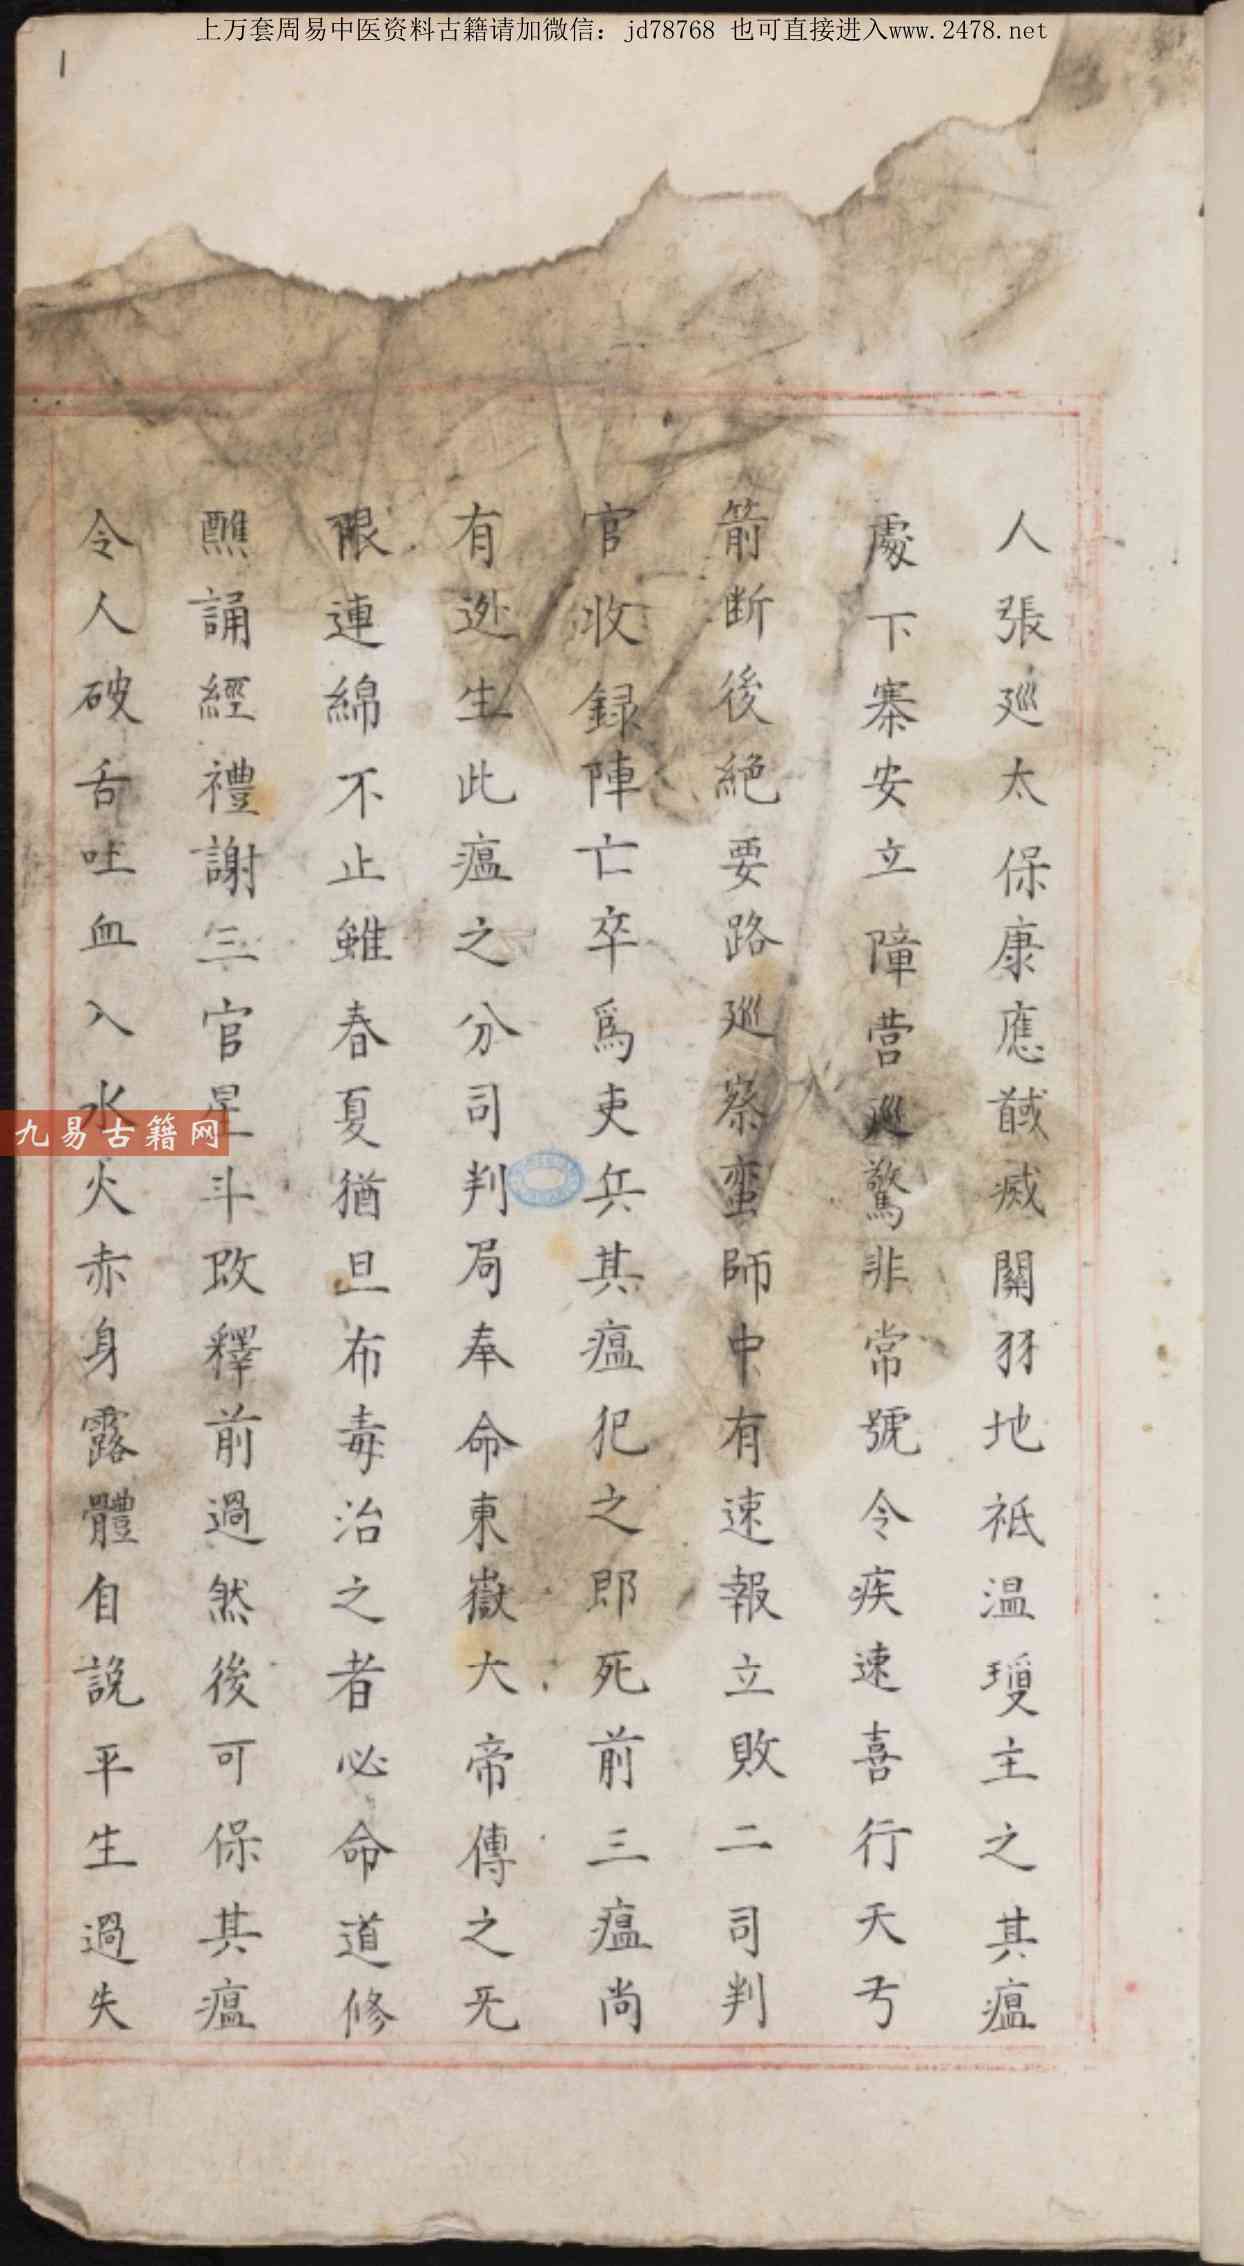 上万套周易中医资料古籍请加微信：jd78768 也可直接进入www.2478.net
1
人張巡太保康應馘滅關羽地祇温瓊主之其瘟
處下寨安立障营巡驚非常號令疾速喜行天亐
箭断後絶要路巡察蛮師中有速報立敗二司判
官收録陣亡卒爲吏兵其瘟犯之郎死前三瘟尚
有迯生此瘟之分司判局奉命東嶽大帝傳之旡
限連綿不止雖春夏猶且布毒治之者必命道修
醮誦經禮謝三官星斗改釋前過然後可保其瘟
令人破舌吐血入水火赤身露體自說平生過失
九易古籍网